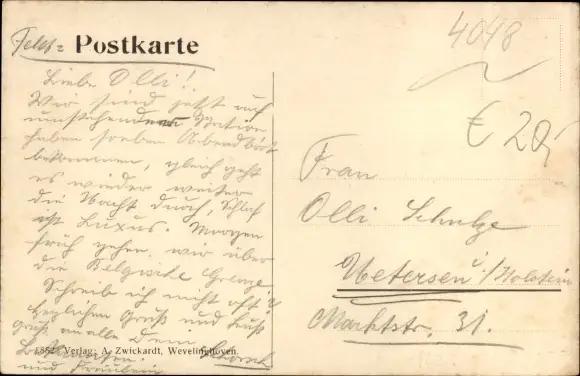 Feld=Postkarte
Liebe Olli!
Wir sind jetzt auf
umstehender Station
haben soeben Abendbrot
bekommen, gleich geht
es wieder weiter
die Nacht durch, Schlaf
ist Luxus. Morgen
früh gehen wir über
die Belgische Grenze.
Schreib ich nicht oft?
Herzlichen Gruß und Kuß
grüß an alle Dein
und Fräulein
1552 Verlag: A. Zwickardt, Wevelinghoven.
4048
€ 20,
Frau
Olli Schulze
Uetersen i/Holstein
Marktstr. 31.